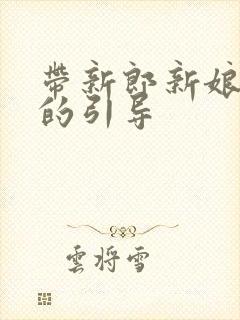 帶新郎新娘
的引导
雲将雪